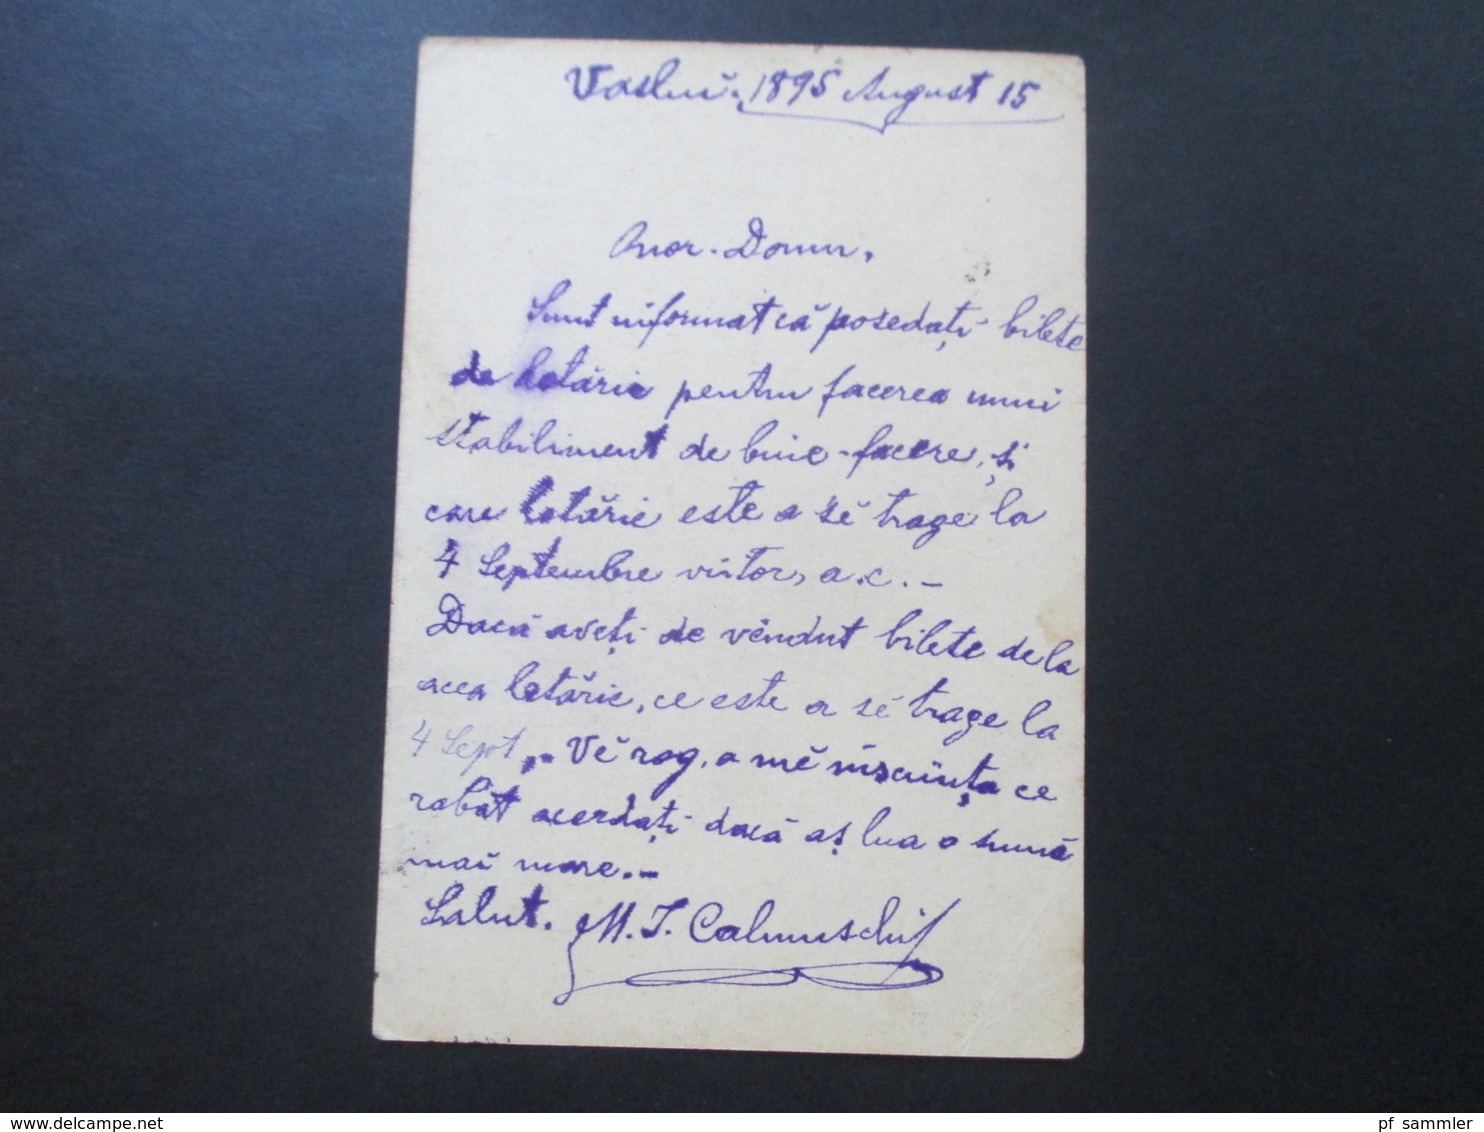 Vasluĭ. 1895 August 15
Onor. Domn,
Sunt informat că posedați bilete
de lotărie pentru facerea unui
stabiliment de bine-facere, și
care lotărie este a sĕ trage la
4 Septembre viitor, a.c. –
Dacă aveți de vêndut bilete de la
acea lotărie, ce este a sĕ trage la
4 Sept, Vĕ rog, a mĕ însciința ce
rabat acordați dacă aș lua o sumă
maĭ mare. –
Salut. M. I. Calmuschi
pf_sammler